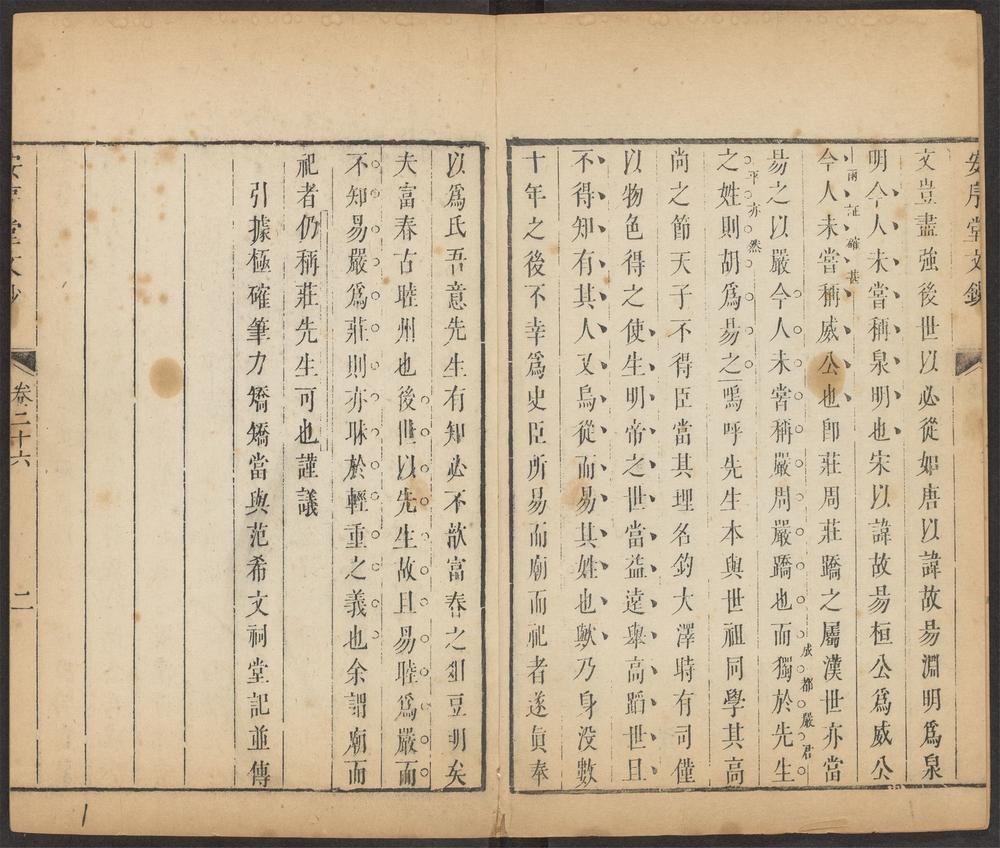 安序堂文鈔
文豈盡強後世以必從如唐以諱故易淵明爲泉
明今人未嘗稱泉明也宋以諱故易桓公爲威公
今人未嘗稱威公也卽莊周莊蹻之屬漢世亦當
兩証確甚
易之以嚴今人未嘗稱嚴周嚴蹻也而獨於先生
成都嚴君
平亦然
之姓則胡爲易之嗚呼先生本與世祖同學其高
尚之節天子不得臣當其埋名釣大澤時有司僅
以物色得之使生明帝之世當益遠舉高蹈世且
不得知有其人又烏從而易其姓也歟乃身没數
十年之後不幸爲史臣所易而廟而祀者遂眞奉
以爲氏吾意先生有知必不歆富春之俎豆明矣
夫富春古睦州也後世以先生故且易睦爲嚴而
不知易嚴爲莊則亦昧於輕重之義也余謂廟而
祀者仍稱莊先生可也謹議
引據極確筆力矯矯當與范希文祠堂記並傳
安序堂文鈔
卷二十六
二